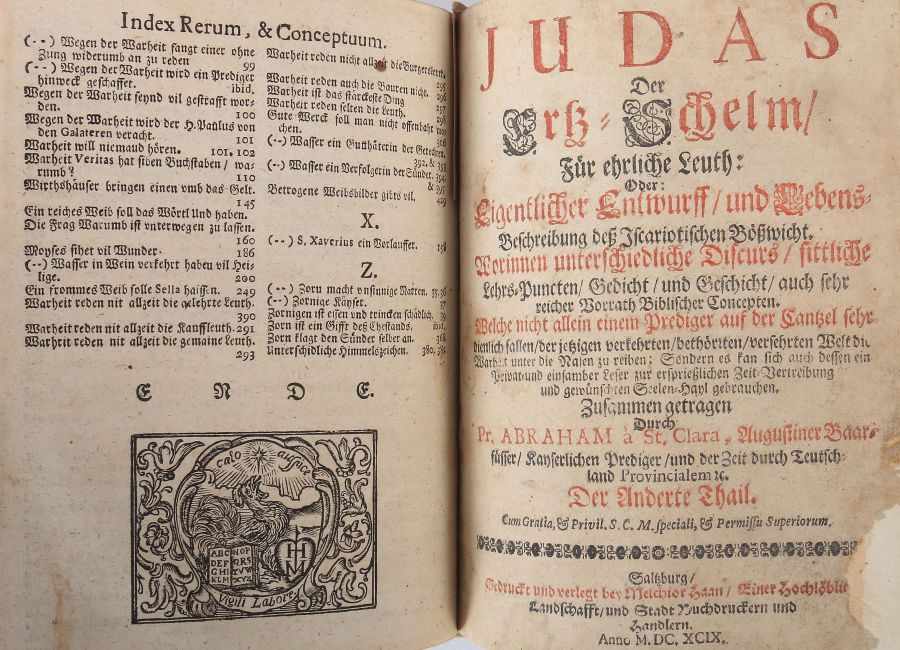 Index Rerum, & Conceptuum.
(--) Wegen der Warheit fangt einer ohne
Zung widerumb an zu reden 99
(--) Wegen der Warheit wird ein Prediger
hinweck geschaffet. ibid.
Wegen der Warheit seynd vil gestrafft wor-
den. 100
Wegen der Warheit wird der H. Paulus von
den Galateren veracht. 101
Warheit will niemand hören. 101. 102
Warheit Veritas hat siben Buchstaben / war-
rumb? 110
Wirthshäuser bringen einen umb das Gelt.
145
Ein reiches Weib soll das Wörtl Und haben.
Die Frag Warumb ist unterwegen zu lassen.
160
Moyses sihet vil Wunder. 186
(--) Wasser in Wein verkehrt haben vil Hei-
lige. 200
Ein frommes Weib solle Sella haissen. 249
Warheit reden nit allzeit die gelehrte Leuth.
390
Warheit reden nit allzeit die Kauffleuth. 291
Warheit reden nit allzeit die gemaine Leuth.
293
Warheit reden nicht allzeit die Burgersleut.
295
Warheit reden auch die Bauren nicht. 296
Warheit ist das stärckeste Ding 297
Warheit reden selten die Leuth. 298
Gute Werck soll man nicht offenbahr
chen.
316
(--) Wasser ein Gutthäterin der Gerechten.
392. &
(--) Wasser ein Verfolgerin der Sünder. 394.
& 395
Betrogene Weibsbilder gibts vil. 429
X.
(--) S. Xaverius ein Vorlauffer. 138
Z.
(--) Zorn macht unsinnige Narren. 35. 36
(--) Zornige Käyser. 37
Zornigen ist essen und trincken schädlich. 39
Zorn ist ein Gifft deß Ehestands. ibid.
Zorn klagt den Sünder selber an. 368
Unterschidliche Himmelszeichen. 380. 381
E N D E.
calo auspice
ABC NOP
DEF QRS
GHI TVW
KLM XYZ
Vigili Labore
JUDAS
Der
Ertz-Schelm /
Für ehrliche Leuth:
Oder:
Eigentlicher Entwurff / und Lebens-
Beschreibung deß Iscariotischen Bößwicht.
Worinnen unterschiedliche Discurs / sittliche
Lehrs-Puncten / Gedicht / und Geschicht / auch sehr
reicher Vorrath Biblischer Concepten.
Welche nicht allein einem Prediger auf der Cantzel sehr
dienlich fallen / der jetzigen verkehrten / bethörrten / versehrten Welt die
Warheit unter die Nasen zu reiben; Sondern es kan sich auch dessen ein
Privat- und einsamber Leser zur ersprießlichen Zeit-Vertreibung
und gewünschten Seelen-Hayl gebrauchen.
Zusammen getragen
Durch
Pr. ABRAHAM à St. Clara, Augustiner Baar-
füsser / Kayserlichen Prediger / und der Zeit durch Teutsch-
land Provincialem &c.
Der Anderte Thail.
Cum Gratia, & Privil. S. C. M. speciali, & Permissu Superiorum.
Saltzburg /
Gedruckt und verlegt bey Melchior Haan / Einer Hochlöbli
Landschafft / und Stadt Buchdruckern und
Handlern.
Anno M. DC. XCIX.